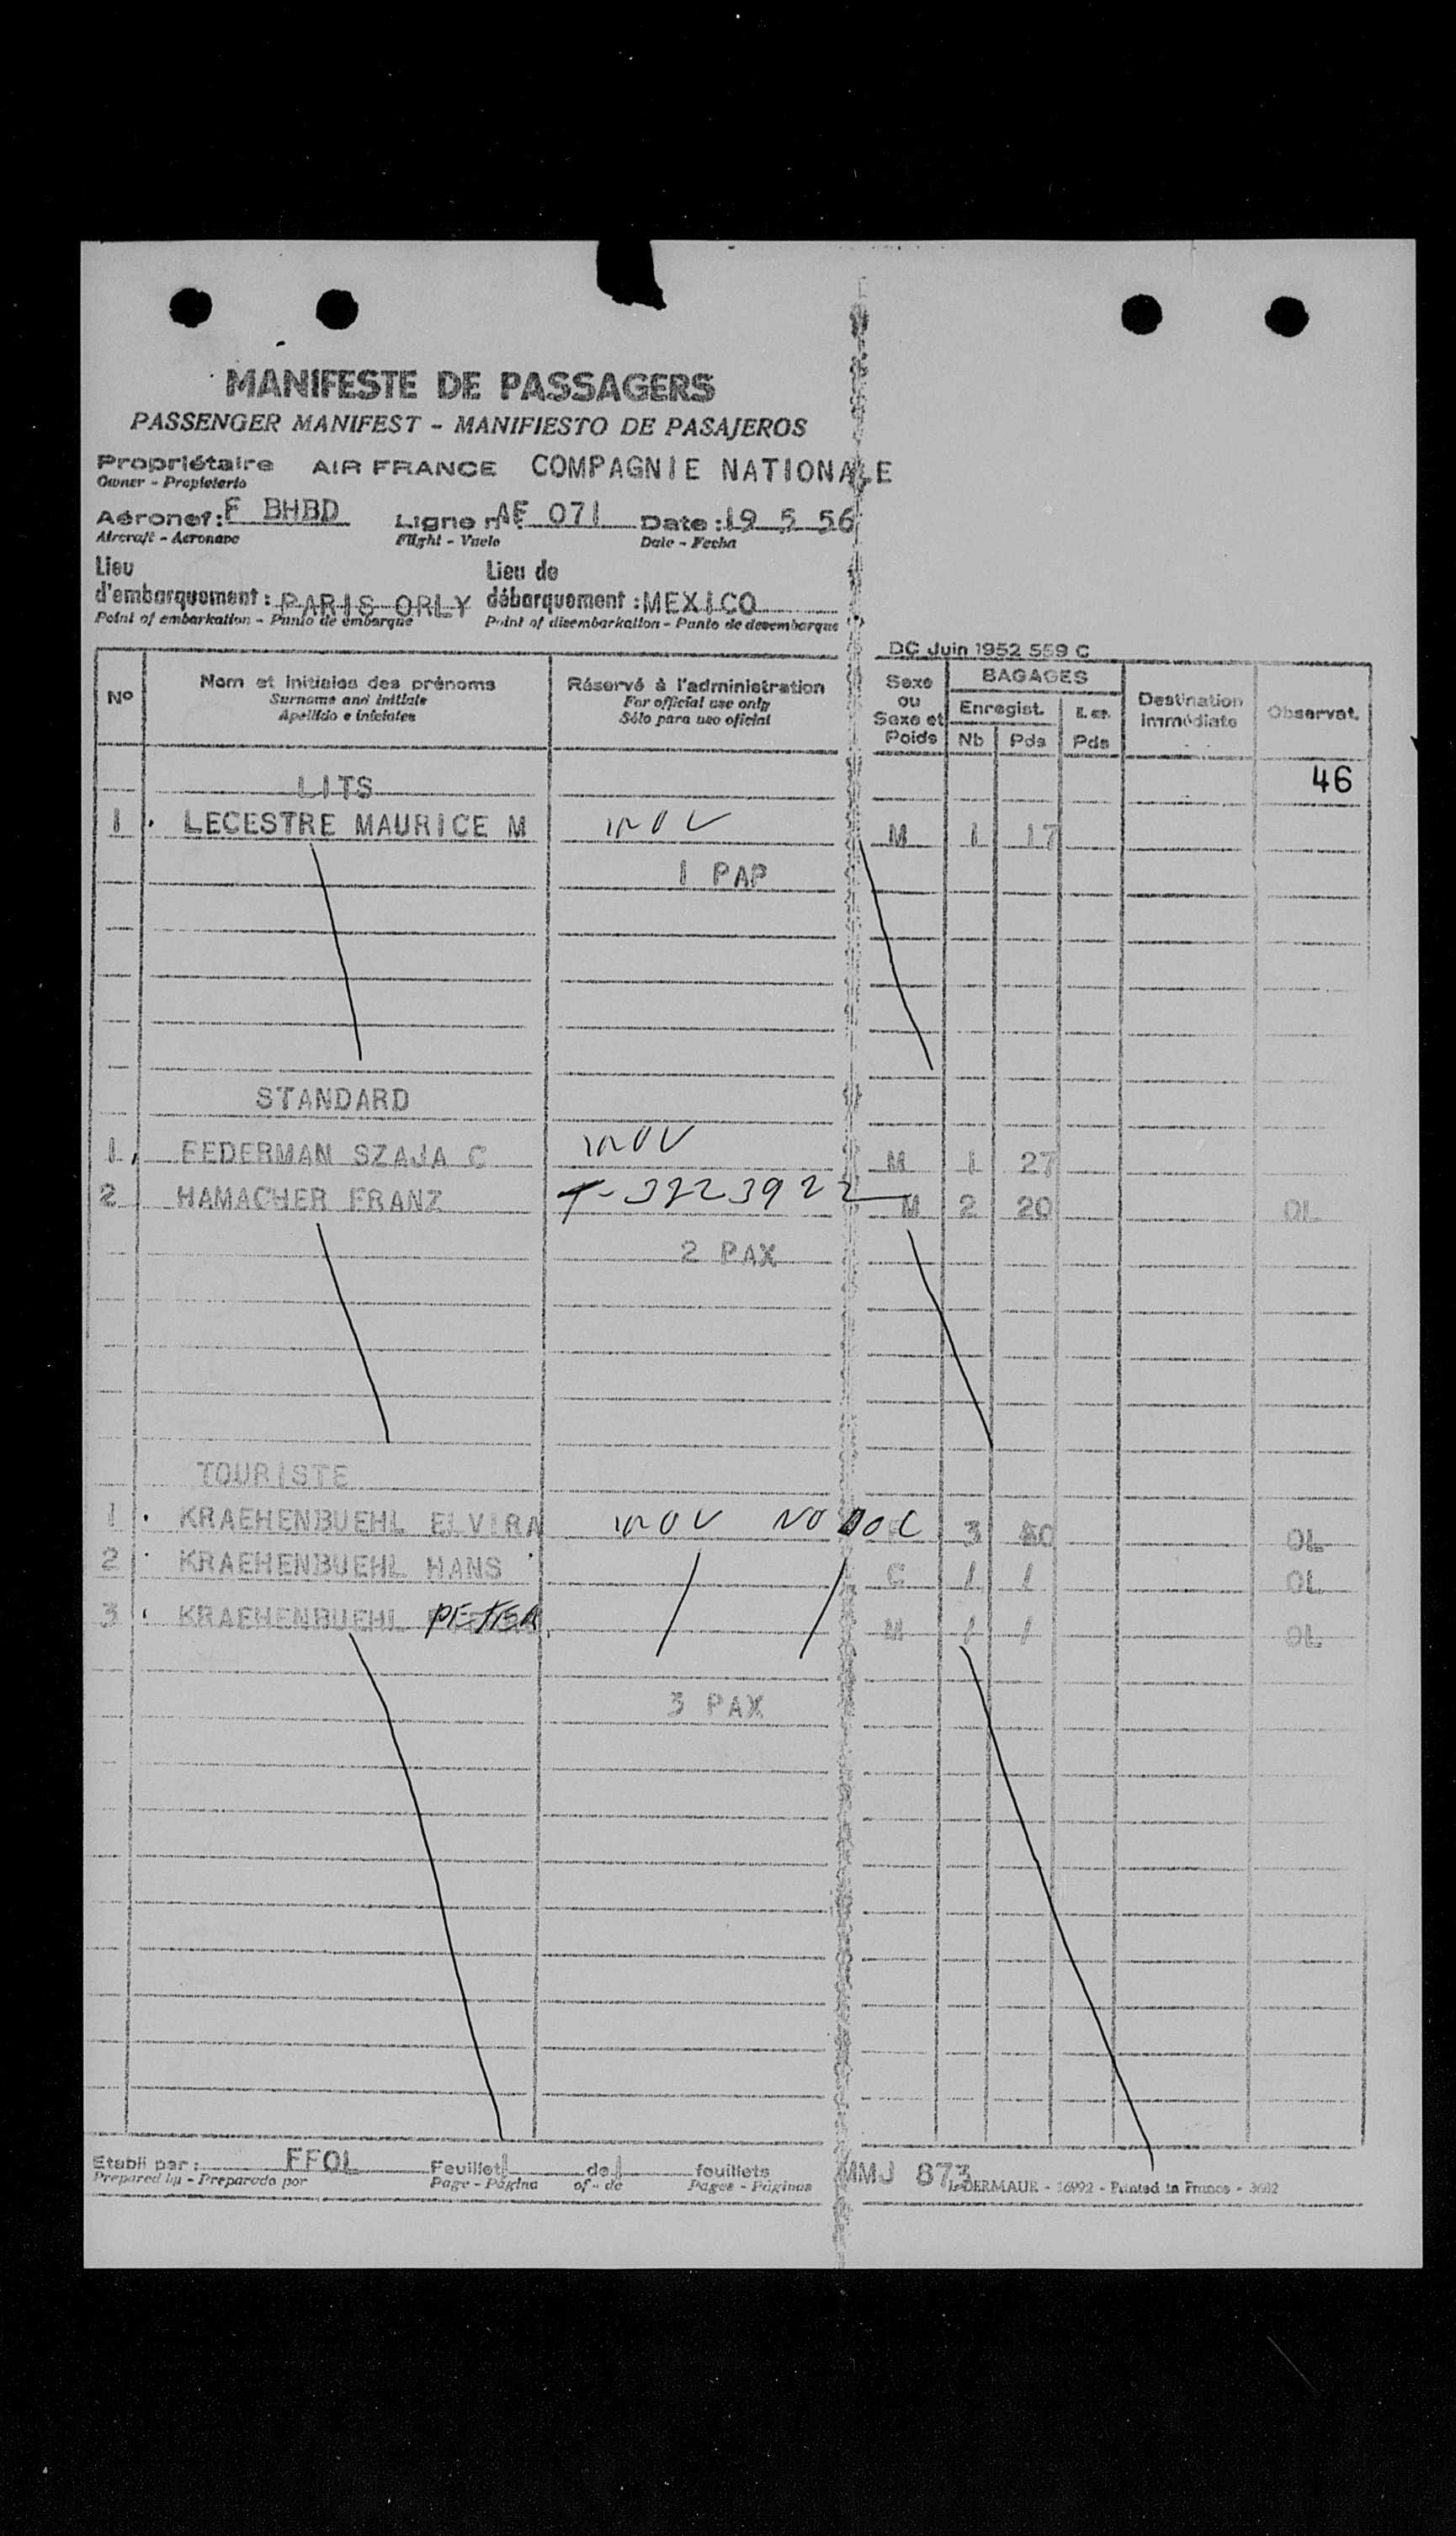 MANIFESTE DE PASSAGERS
PASSENGER MANIFEST - MANIFIESTO DE PASAJEROS
Propriétaire AIR FRANCE COMPAGNIE NATIONALE
Owner - Propietario
Aéronef: F BHBD Ligne n°: AF 071 Date: 19 5 56
Aircraft - Aeronave Flight - Vuelo Date - Fecha
Lieu Lieu de
d'embarquement: PARIS ORLY débarquement: MEXICO
Point of embarkation - Punto de embarque Point of disembarkation - Punto de desembarque
DC Juin 1952 559 C
No Nom et initiales des prénoms Réservé à l'administration Sexe ou Sexe et Poids BAGAGES Destination immédiate Observat.
Surname and initials For official use only Enregist.
Apellido e iniciales Sólo para uso oficial Nb Pds Pds
46
LITS
1 LECESTRE MAURICE M INOV M 1 17
1 PAP
STANDARD
1 FEDERMAN SZAJA C INOV M 1 27
2 HAMACHER FRANZ T-3223922 M 2 20 OL
2 PAX
TOURISTE
1 KRAEHENBUEHL ELVIRA INOV NO DOC 3 OL
2 KRAEHENBUEHL HANS / / C / / OL
3 KRAEHENBUEHL PETER / / M / / OL
3 PAX
Etabli par: FFOL Feuillet 1 de 1 feuillets MMJ 873
Prepared by - Preparado por Page - Página of - de Pages - Páginas
Printed in France